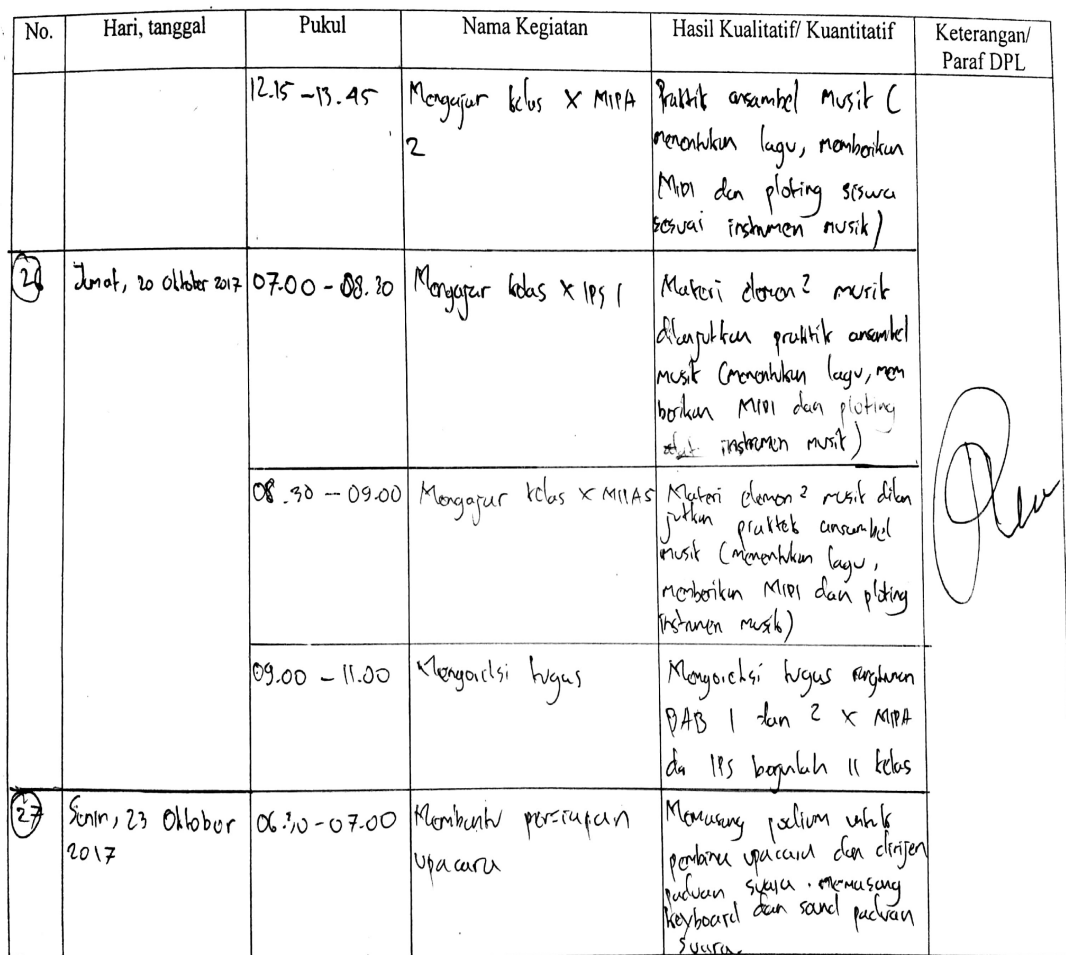 No.
Hari, tanggal
Pukul
Nama Kegiatan
Hasil Kualitatif/ Kuantitatif
Keterangan/
Paraf DPL
12.15 - 13.45
Mengajar kelas X MIPA
2
Praktik ansambel musik (
menentukan lagu, memberikan
MIDI dan ploting siswa
sesuai instrumen musik)
26
Jumat, 20 Oktober 2017
07.00 - 08.30
Mengajar kelas X IPS 1
Materi elemen² musik
dilanjutkan praktik ansambel
musik (menentukan lagu, mem
berikan MIDI dan ploting
instrumen musik)
08.30 - 09.00
Mengajar kelas X MIIA5
Materi elemen² musik dilan
jutkan praktek ansambel
musik (menentukan lagu,
memberikan MIDI dan ploting
instrumen musik)
09.00 - 11.00
Mengoreksi tugas
Mengoreksi tugas rangkuman
BAB 1 dan 2 X MIPA
da IPS berjumlah 11 kelas
27
Senin, 23 Oktober
2017
06.30 - 07.00
Membantu persiapan
upacara
Memasang podium untuk
pembina upacara dan dirijen
paduan suara. memasang
keyboard dan sound paduan
suara.